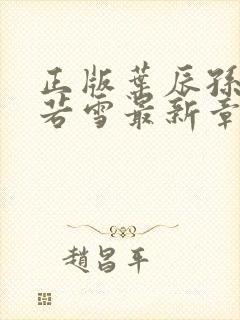 正版葉辰孫
若雪最新章
趙昌平